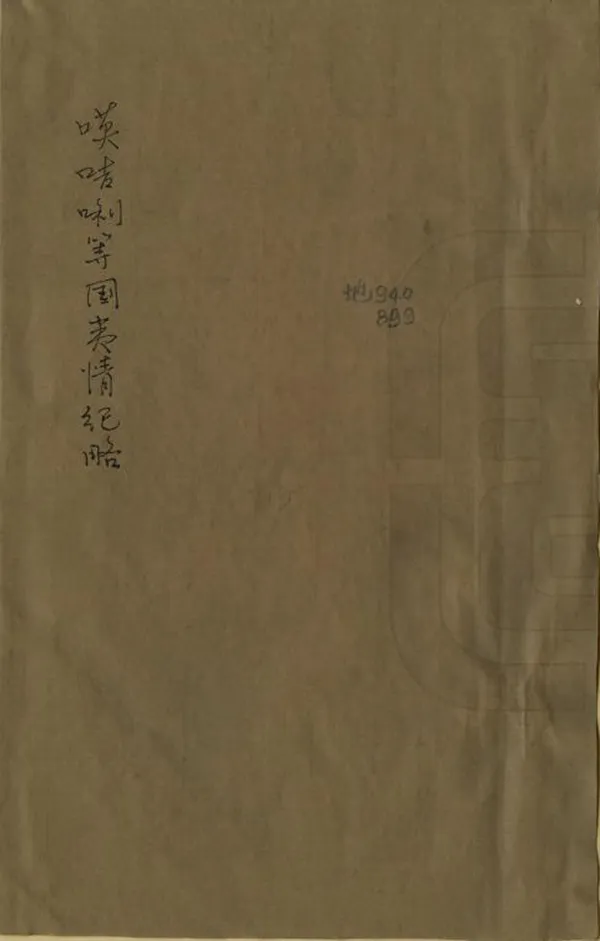 嘆咭唎等国夷情纪略
地940
899